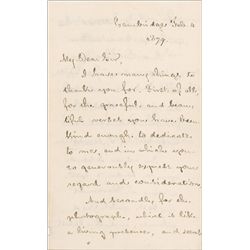 Cambridge Feb. 4
1879
My Dear Sir,
I have many things to
thank you for. First of all,
for the graceful and beau-
tiful verses you have been
kind enough to dedicate
to me, and in which you
so generously express your
regard and consideration.
And secondly, for the
photograph, which is like
a living presence, and